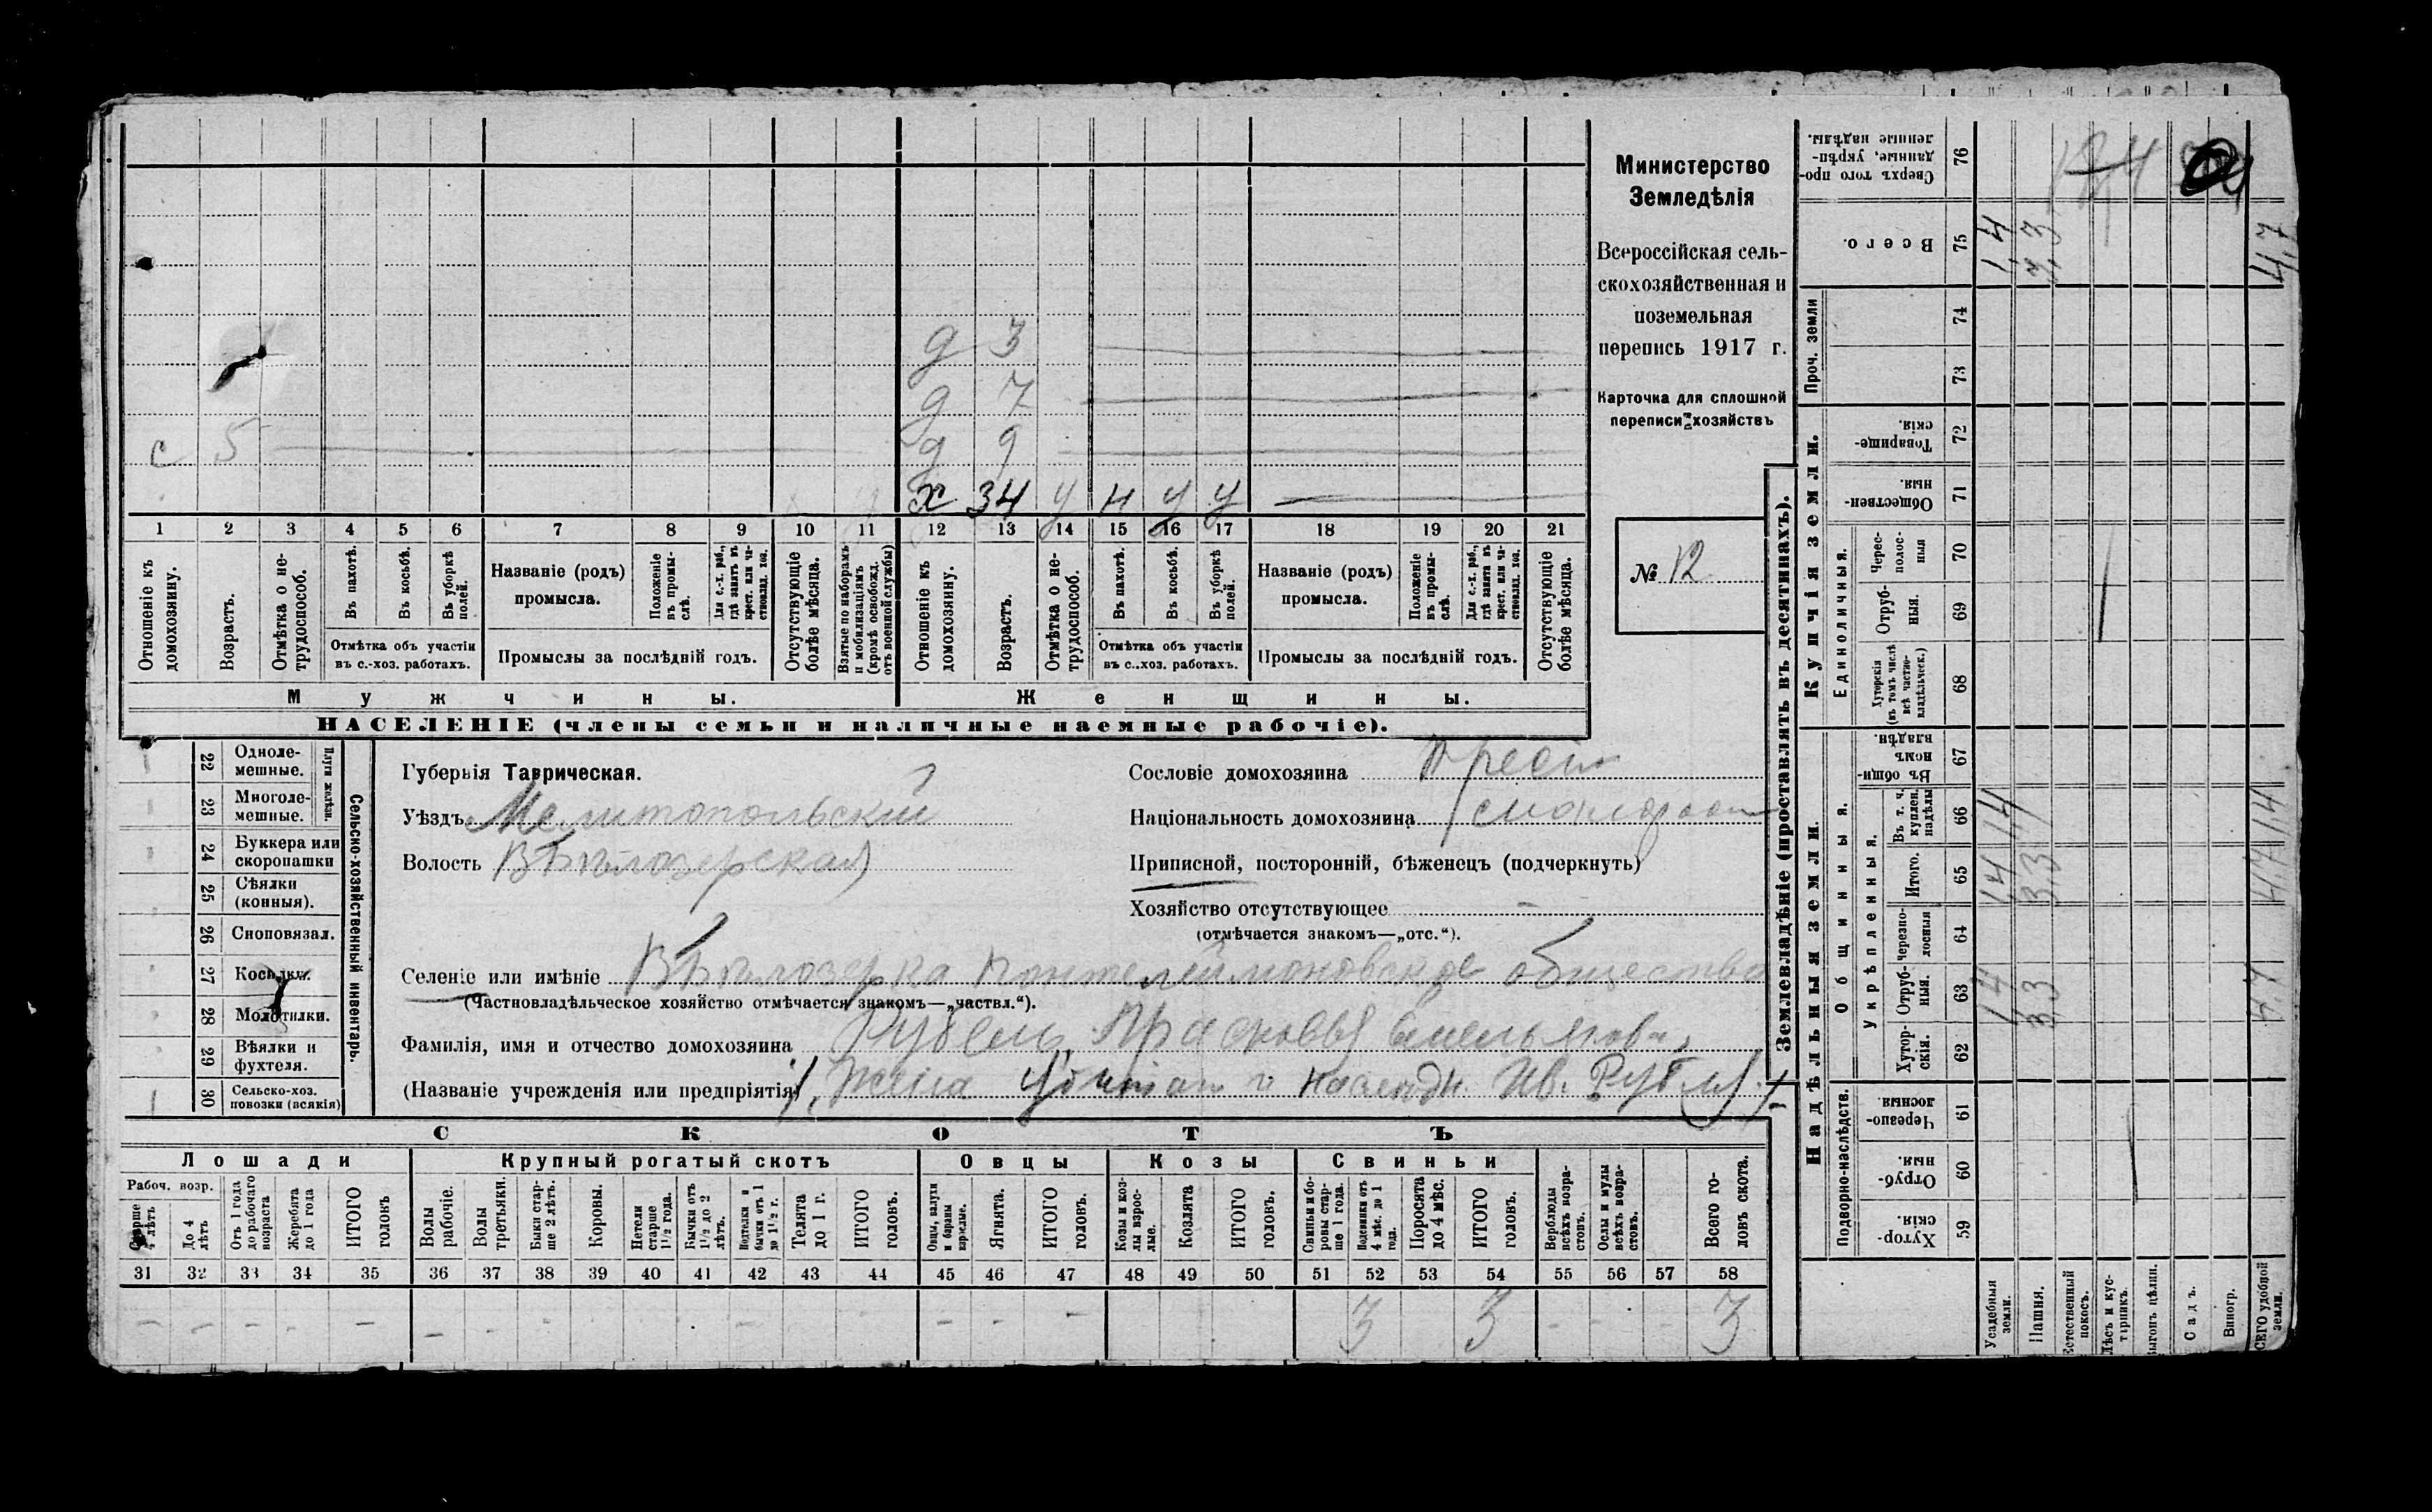 д 3
д 7
с 5 д 9
х 34 у н у у
1 2 3 4 5 6 7 8 9 10 11 12 13 14 15 16 17 18 19 20 21
Отношеніе къ домохозяину.
Возрастъ.
Отмѣтка о не-трудоспособ.
Въ пахотѣ.
Въ косьбѣ.
Въ уборкѣ полей.
Отмѣтка объ участіи
въ с.-хоз. работахъ.
Названіе (родъ)
промысла.
Положеніе въ промы-слѣ.
Для с.-х. раб., гдѣ занятъ въ крест. или ча-стновлад. хоз.
Промыслы за послѣдній годъ.
Отсутствующіе болѣе мѣсяца.
Взятые по наборамъ и мобилизаціямъ (кромѣ освобожд. отъ военной службы)
Отношеніе къ домохозяину.
Возрастъ.
Отмѣтка о не-трудоспособ.
Въ пахотѣ.
Въ косьбѣ.
Въ уборкѣ полей.
Отмѣтка объ участіи
въ с.-хоз. работахъ.
Названіе (родъ)
промысла.
Положеніе въ промы-слѣ.
Для с.-х. раб., гдѣ занята въ крест. или ча-стновлад. хоз.
Промыслы за послѣдній годъ.
Отсутствующіе болѣе мѣсяца.
Мужчины. Женщины.
НАСЕЛЕНІЕ (члены семьи и наличные наемные рабочіе).
Министерство
Земледѣлія
Всероссійская сель-
скохозяйственная и
поземельная
перепись 1917 г.
Карточка для сплошной
переписи хозяйствъ
№ 12
22 Одноле-
мешные.
23 Многоле-
мешные.
Плуги желѣзн.
24 Буккера или
скоропашки
25 Сѣялки
(конныя).
26 Сноповязал.
27 Косилки.
28 Молотилки.
29 Вѣялки и
фухтеля.
30 Сельско-хоз.
повозки (всякія)
1
Сельско-хозяйственный инвентарь.
Губернія Таврическая.
Уѣздъ Мелитопольскій
Волость Бѣлозерская
Сословіе домохозяина Крест
Національность домохозяина
Приписной, посторонній, бѣженецъ (подчеркнуть)
Хозяйство отсутствующее –
(отмѣчается знакомъ—„отс.“).
Селеніе или имѣніе Бѣлозерка Пантелеймоновское общество
(Частновладѣльческое хозяйство отмѣчается знакомъ—„частвл.“).
Фамилія, имя и отчество домохозяина Рубель Прасковья Емельянова,
(Названіе учрежденія или предпріятія) Жена Ив. Рубля
СКОТЪ
Лошади Крупный рогатый скотъ Овцы Козы Свиньи
Рабоч. возр.
Старше 4 лѣтъ
До 4 лѣтъ
Отъ 1 года до рабочаго возраста
Жеребята до 1 года
ИТОГО головъ
Волы рабочіе.
Волы третьяки.
Быки стар-ше 2 лѣтъ.
Коровы.
Нетели старше 1 1/2 года.
Бычки отъ 1 1/2 до 2 лѣтъ.
Нетелки и бычки отъ 1 до 1 1/2 г.
Телята до 1 г.
ИТОГО головъ.
Овцы, валухи и бараны взрослые.
Ягнята.
ИТОГО головъ.
Козы и коз-лы взрос-лые.
Козлята
ИТОГО головъ.
Свиньи и бо-ровы стар-ше 1 года.
Подсвинки отъ 4 мѣс. до 1 года.
Поросята до 4 мѣс.
ИТОГО головъ.
Верблюды всѣхъ возра-стовъ.
Ослы и мулы всѣхъ возра-стовъ.
Всего го-ловъ скота.
31 32 33 34 35 36 37 38 39 40 41 42 43 44 45 46 47 48 49 50 51 52 53 54 55 56 57 58
– – – – – – – – – – – – 3 3 – – – 3
Землевладѣніе (проставлять въ десятинахъ).
Сверхъ того про-
данные, укрѣп-
ленные надѣлы. 76
Всего. 75 1,4 3,3 4,7
Проч. земли 74
73
Купчія земли.
Товарище-
скія. 72
Обществен-
ныя. 71
Единоличныя.
Черес-
полос-
ныя 70
Отруб-
ныя. 69
Хуторскія
(въ томъ числѣ
всѣ частно-
владѣльческ.) 68
Надѣльныя земли.
Общинныя.
Въ общи-
номъ
владѣн. 67
Укрѣпленныя.
Въ т. ч.
куплен.
надѣлы 66 1,4 1,4
Итого. 65 1,4 3,3 4,7
Черезпо-
лосныя 64
Отруб-
ныя. 63 1,4 3,3 4,7
Хутор-
скія. 62
Подворно-наслѣдств.
Черезпо-
лосныя. 61
Отруб-
ныя. 60
Хутор-
скія. 59
Усадебныя земли.
Пашня.
Естественный покосъ.
Лѣсъ и кус-тарникъ.
Выгонъ цѣлин.
Садъ.
Виногр.
ВСЕГО удобной земли.